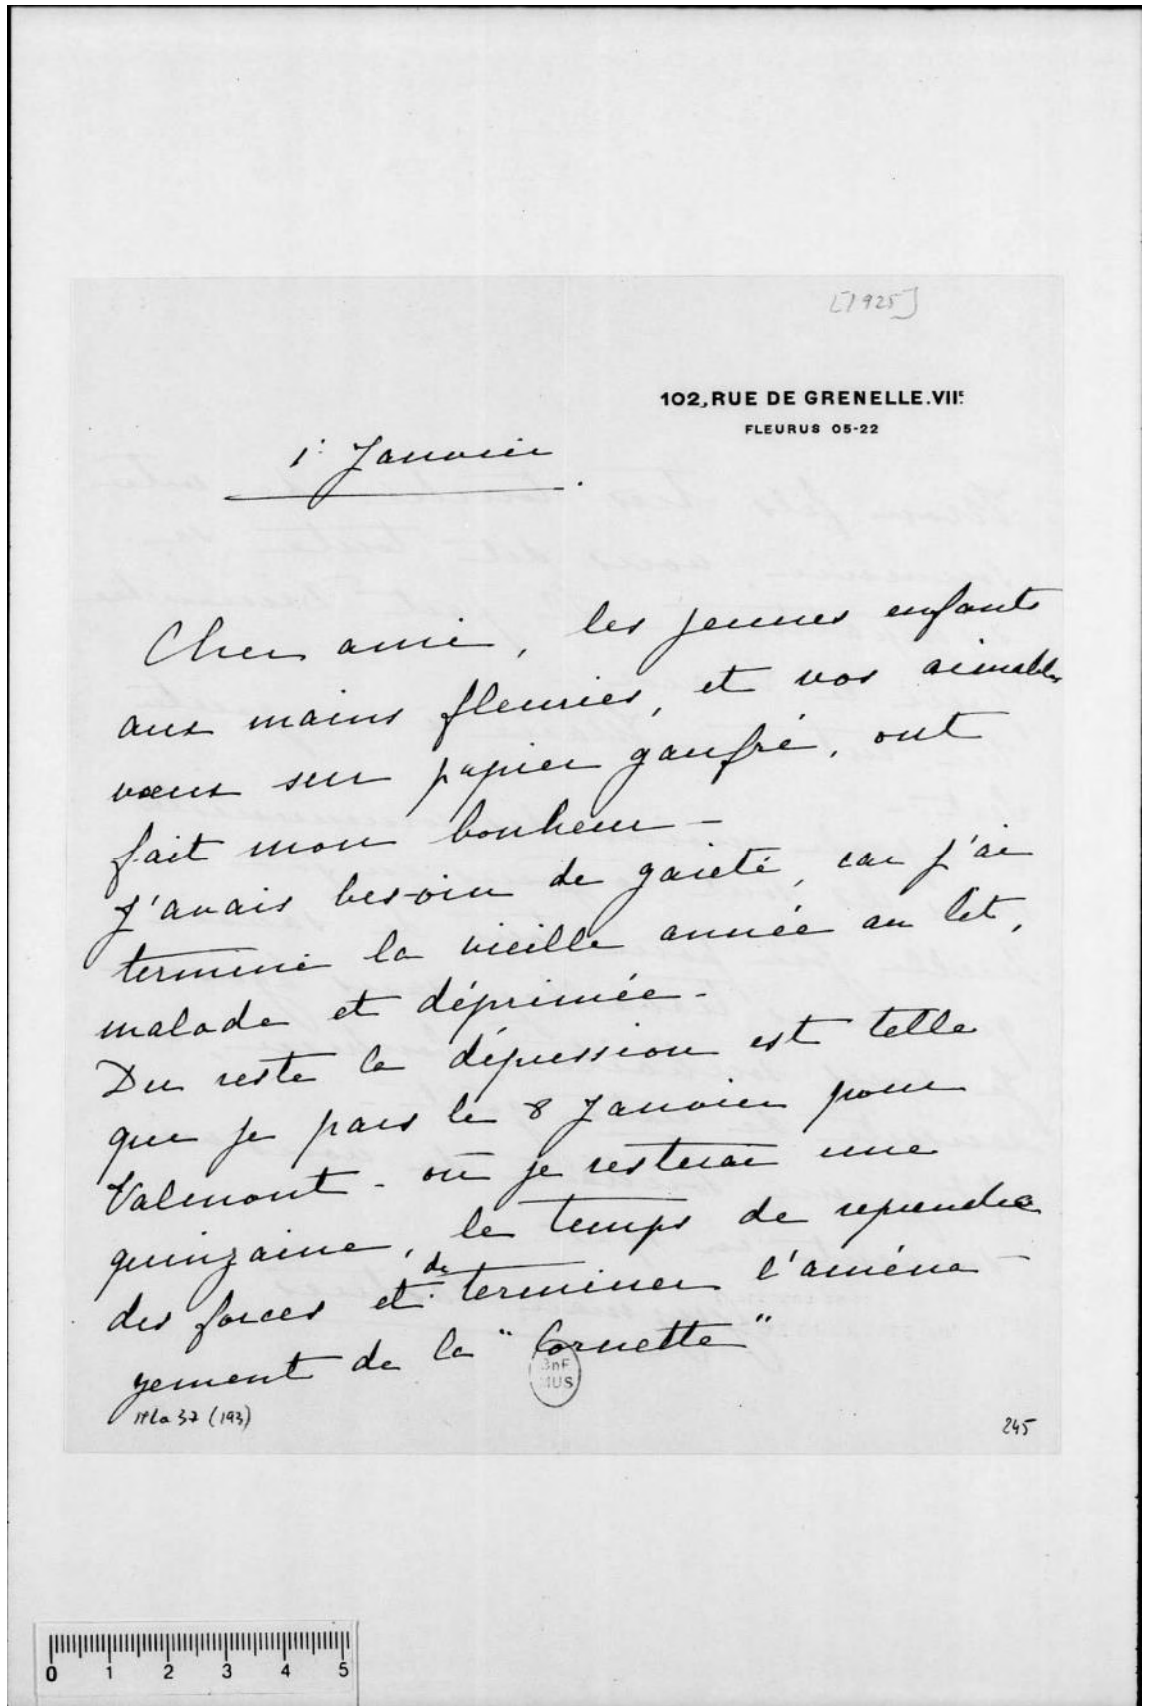 [1925]
102, RUE DE GRENELLE. VIIE
FLEURUS 05-22
1r Janvier.
Cher ami, les jeunes enfants
aux mains fleuries, et vos aimables
vœux sur papier gaufré, ont
fait mon bonheur -
J'avais besoin de gaieté, car j'ai
terminé la vieille année au lit,
malade et déprimée -
Du reste la dépression est telle
que je pars le 8 Janvier pour
Valmont - où je resterai une
quinzaine, le temps de reprendre
des forces et de terminer l'aména-
gement de la "Cornette"
BnF
MUS
Nla 37 (193)
245
0 1 2 3 4 5